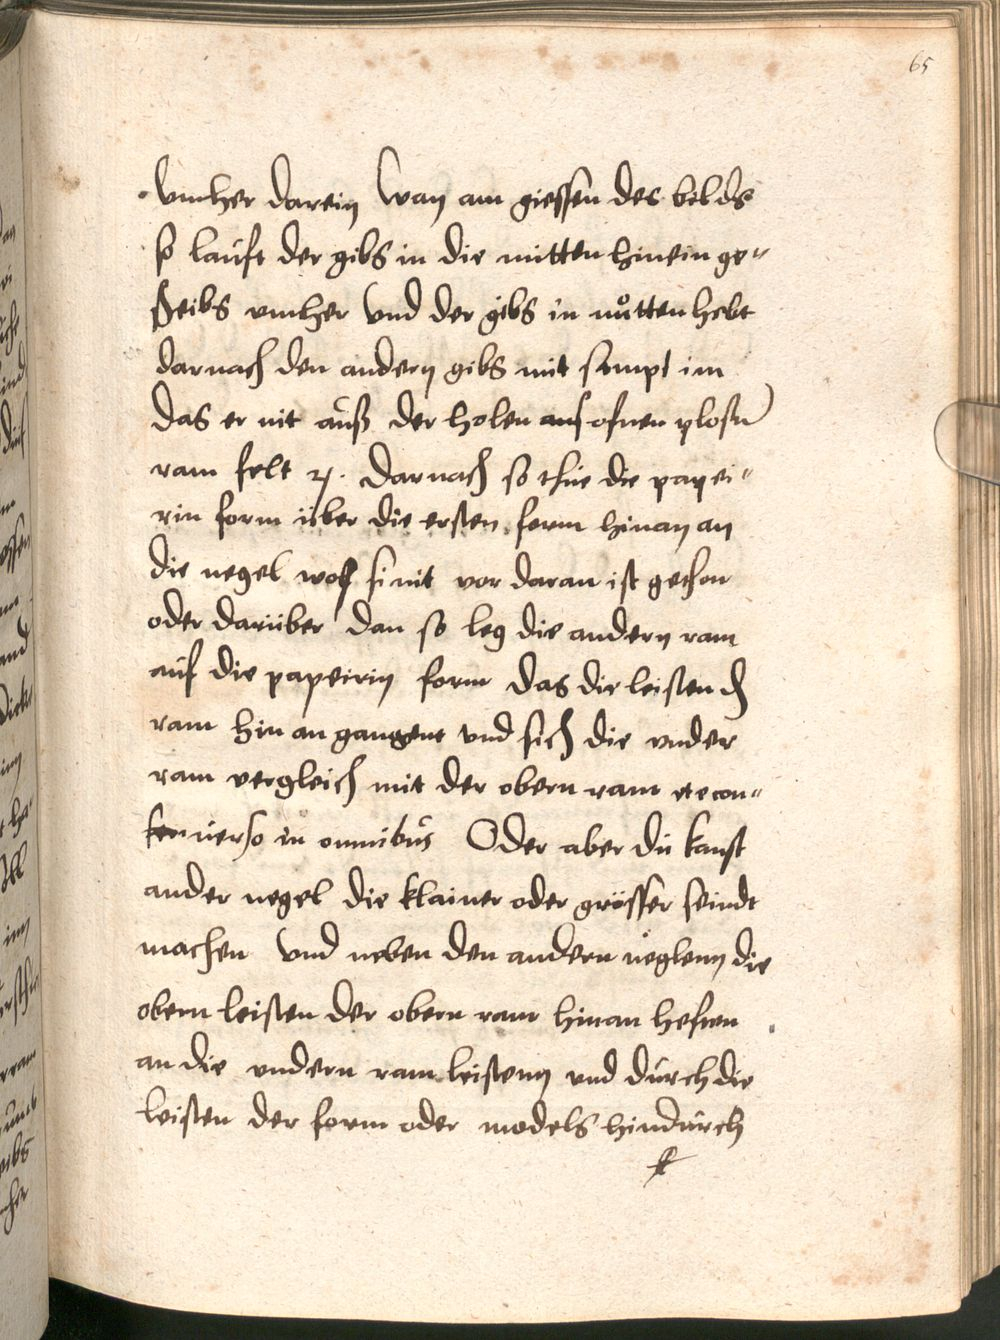 65
vmher darein Wan am giessen des bilds
so laüft der gibs in die mitten hinein ge-
scheibs vmher Vnd der gibs in mitten hebt
darnach den andern gibs mit sampt im
das er nit auß der holen auf ofnen plosen
ram felt ꝛc. darnach so thue die papei-
rin form über die ersten form hinan an
die negel wo si nit vor daran ist gethon
oder darüber dan so leg die andern ram
auf die papeirin form das die leisten d
ram hin an gangent vnd sich die vnder
ram vergleich mit der obern ram et econ-
üerso in omnibüs Oder aber du kanst
ander negel die klainer oder grösser seindt
machen Vnd neben den andern neglenn die
obern leisten der obern ram hinan heften
an die vndern ram leistenn vnd durch die
leisten der form oder models hindürch